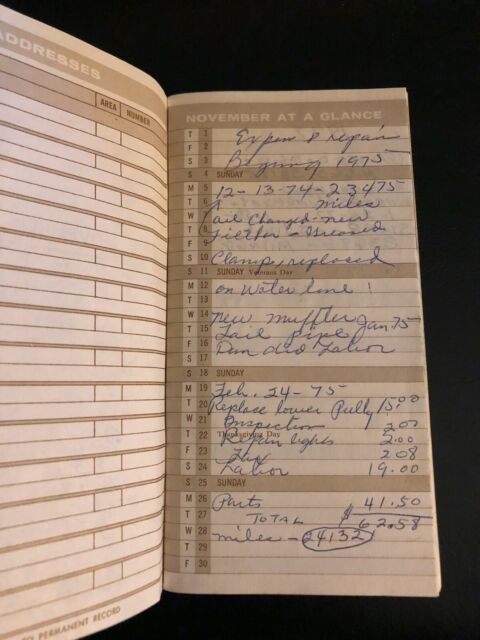 ADDRESSES
AREA NUMBER
TO PERMANENT RECORD
NOVEMBER AT A GLANCE
T 1 Expen & repair
F 2
S 3 Begining 1975
S 4 SUNDAY
M 5 12-13-74-23475
T 6 miles
W 7 oil Changed-new
T 8 Filther - Greased
F 9
S 10 Clamp, replaced
S 11 SUNDAY Veterans Day
M 12 on Water line!
T 13
W 14 new muffler
T 15 Tail pipe Jan 75
F 16 Dan did Labor
S 17
S 18 SUNDAY
M 19 Feb. 24-75
T 20 Replace lower Pully 15.00
W 21 Inspection 2.00
T 22 Thanksgiving Day Repair lights 2.00
F 23 Tax 2.08
S 24 Labor 19.00
S 25 SUNDAY
M 26 Parts $41.50
T 27 TOTAL 62.58
W 28 miles - 24132
T 29
F 30